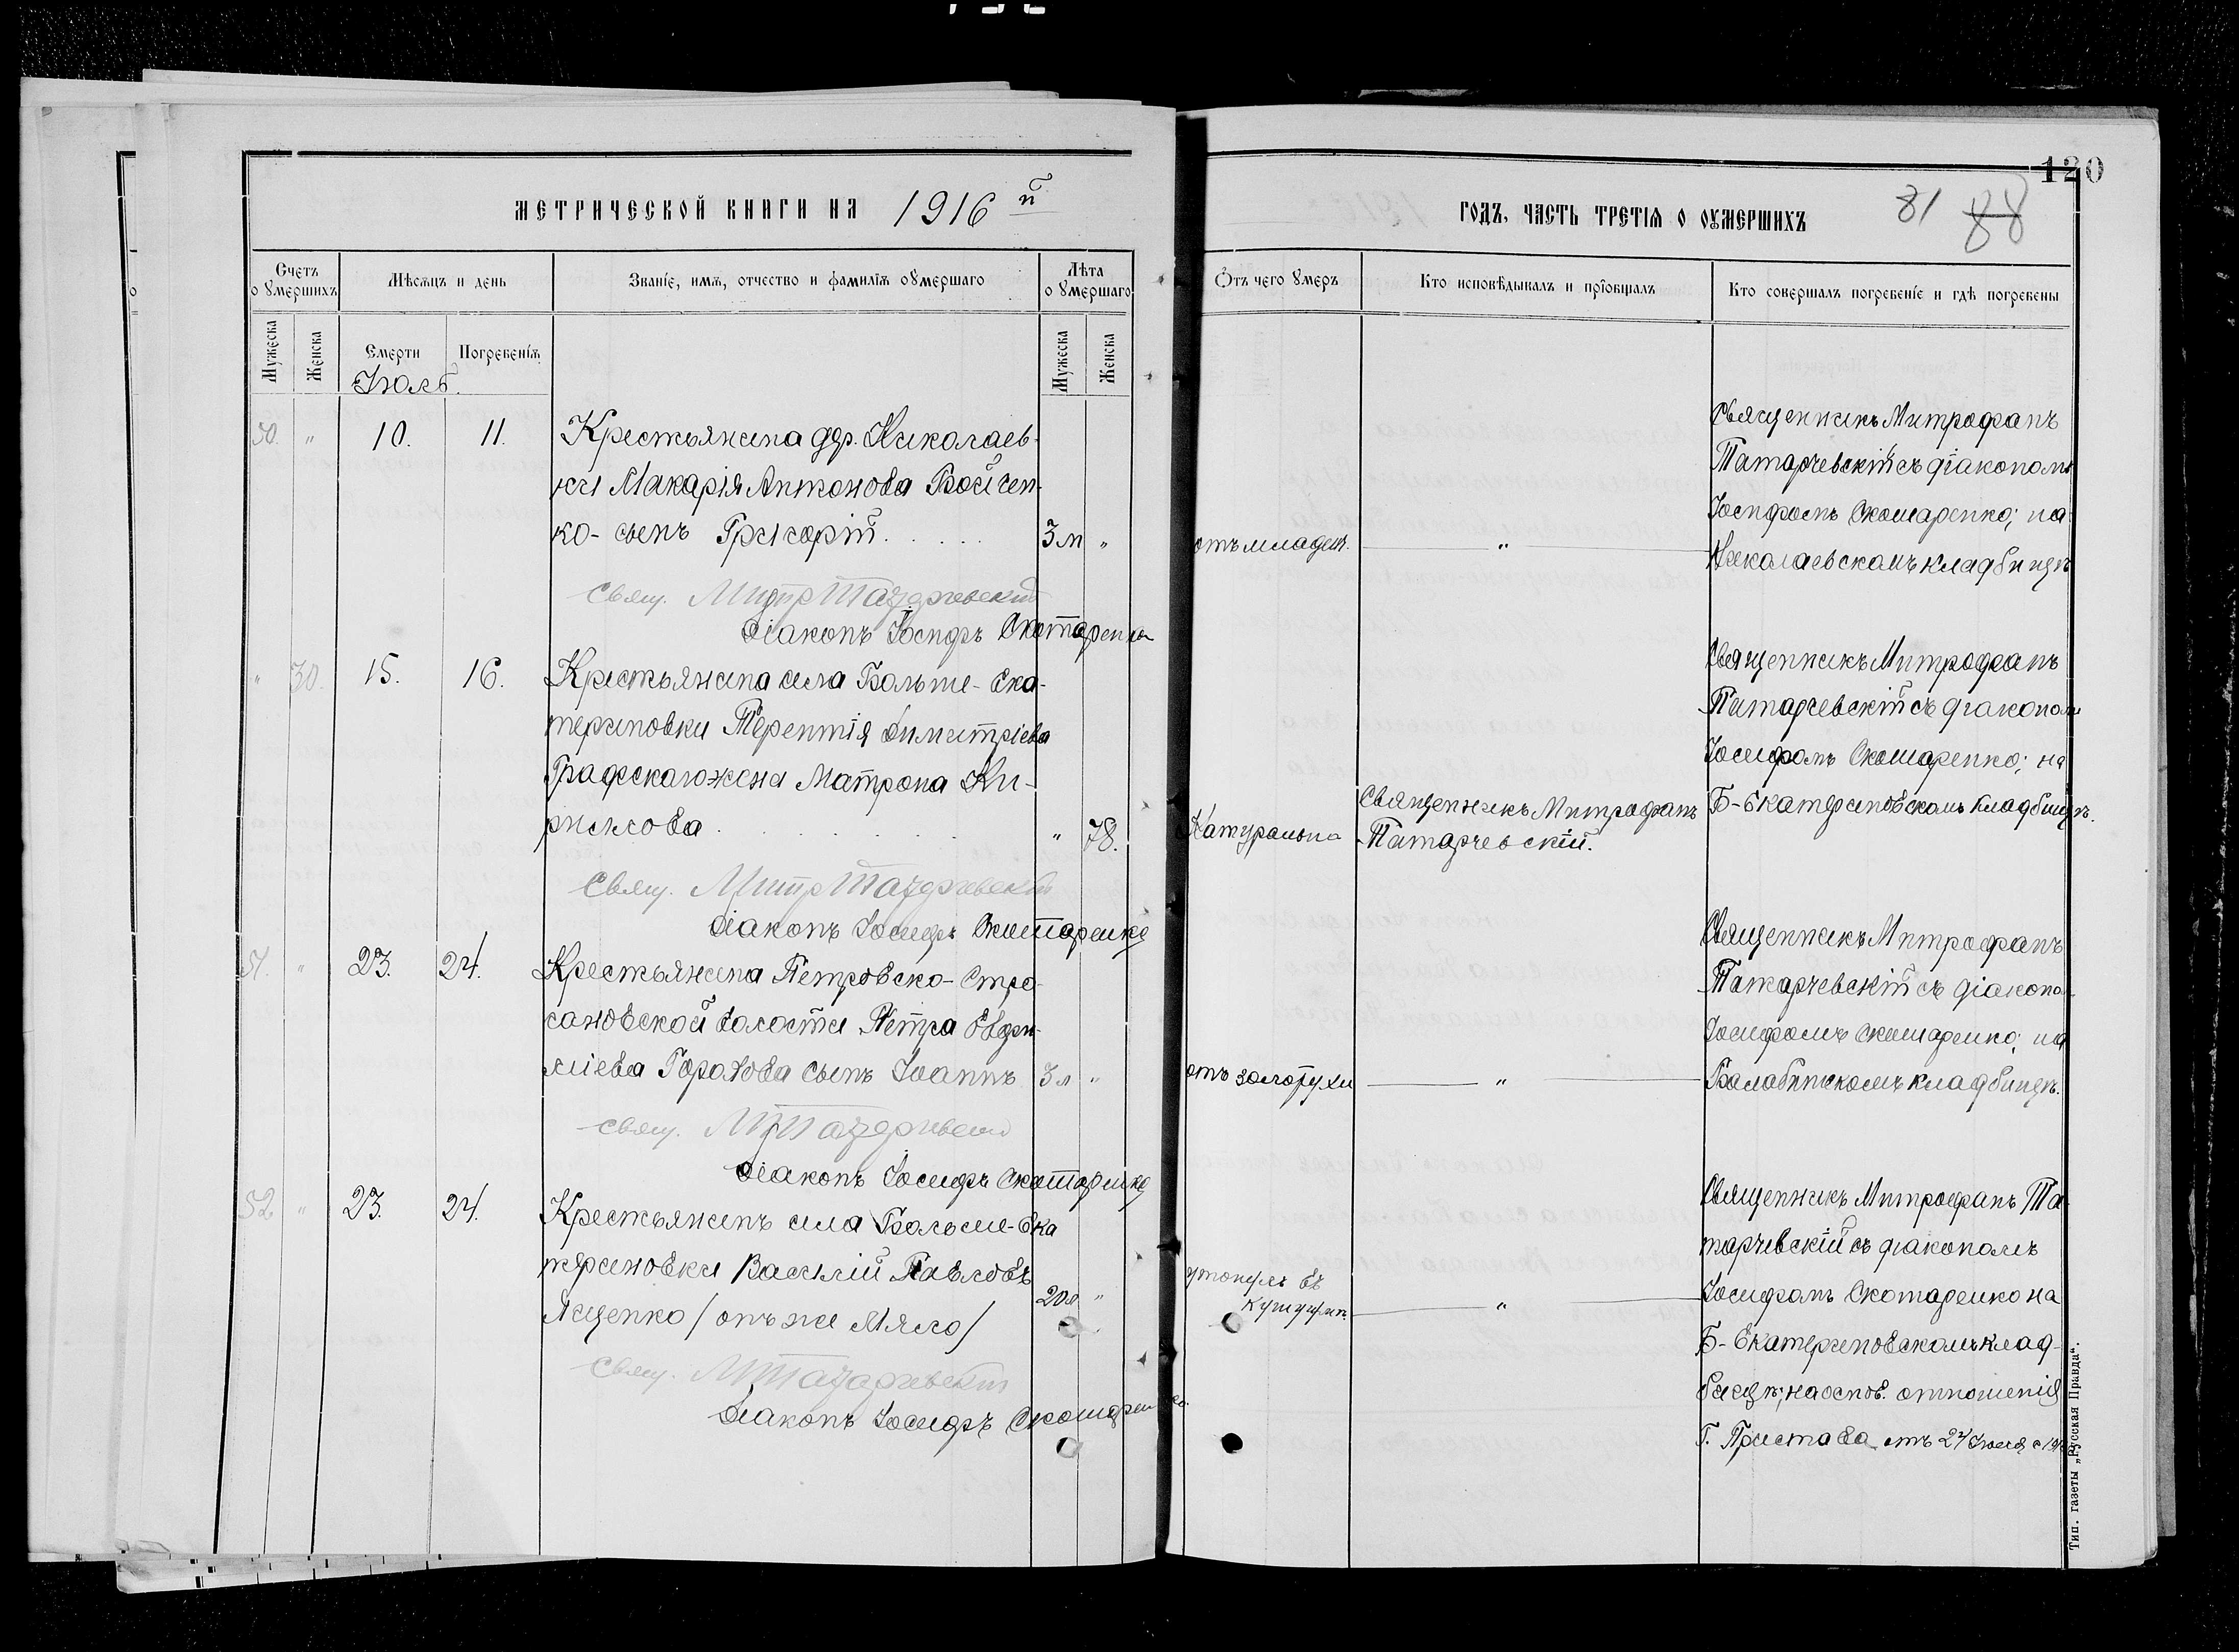 МЕТРИЧЕСКОЙ КНИГИ НА 1916 й
Счетъ оумершихъ
Мѣсяцъ и день
Званіе, имя, отчество и фамилія оумершаго
Лѣта оумершаго
Мужеска
Женска
Смерти
Погребенія
Мужеска
Женска
Іюль.
50. " 10. 11. Крестьянина дер. Николаев-
ки Макарія Антонова Войчен-
ко - сынъ Григорій . . . . . 3 м "
Свящ. Митр Татарчевскій
Діаконъ Іосифъ Скотаренко
" 30. 15. 16. Крестьянина села Больше-Ека-
териновки Терентія Димитріева
Графскаго жена Матрона Ки-
рилова . . . . . . " 78.
Свящ. Митр Татарчевскій
Діаконъ Іосифъ Скотаренко
51. " 23. 24. Крестьянина Петровско-
волости Петра
Горохова сынъ Іоаннъ 3 л "
свящ. М Татарчевскій
Діаконъ Іосифъ Скотаренко
52 " 23. 24. Крестьянинъ села Больше-Ека
териновки Василій Павловъ
Ященко / онъ же Мяло / 20 л "
Свящ. М Татарчевскій
Діаконъ Іосифъ Скотаренко
120
ГОДЪ, ЧАСТЬ ТРЕТІЯ О ОУМЕРШИХЪ 81 88
Отъ чего умеръ
Кто исповѣдывалъ и пріобщалъ
Кто совершалъ погребеніе и гдѣ погребены
Священникъ Митрофанъ
Татарчевскій съ діакономъ
Іосифомъ Скотаренко; на
отъ младен. "
Николаевскомъ кладбищѣ
Священникъ Митрофанъ
Татарчевскій съ діакономъ
Іосифомъ Скотаренко; на
Б-Екатериновскомъ кладбищѣ.
Натурально
Священникъ Митрофанъ
Татарчевскій.
Священникъ Митрофанъ
Татарчевскій съ діакono-
Іосифомъ Скотаренко; на
отъ золотухи "
Балабинскомъ кладбищѣ.
Священникъ Митрофанъ Та-
тарчевскій съ діакономъ
утонулъ въ
Кушугумѣ. "
Іосифомъ Скотаренко на
Б-Екатериновскомъ клад-
бищѣ; на основ. отношенія
Г. Пристава отъ 24 Іюля с
Тип. газеты „Русская Правда".